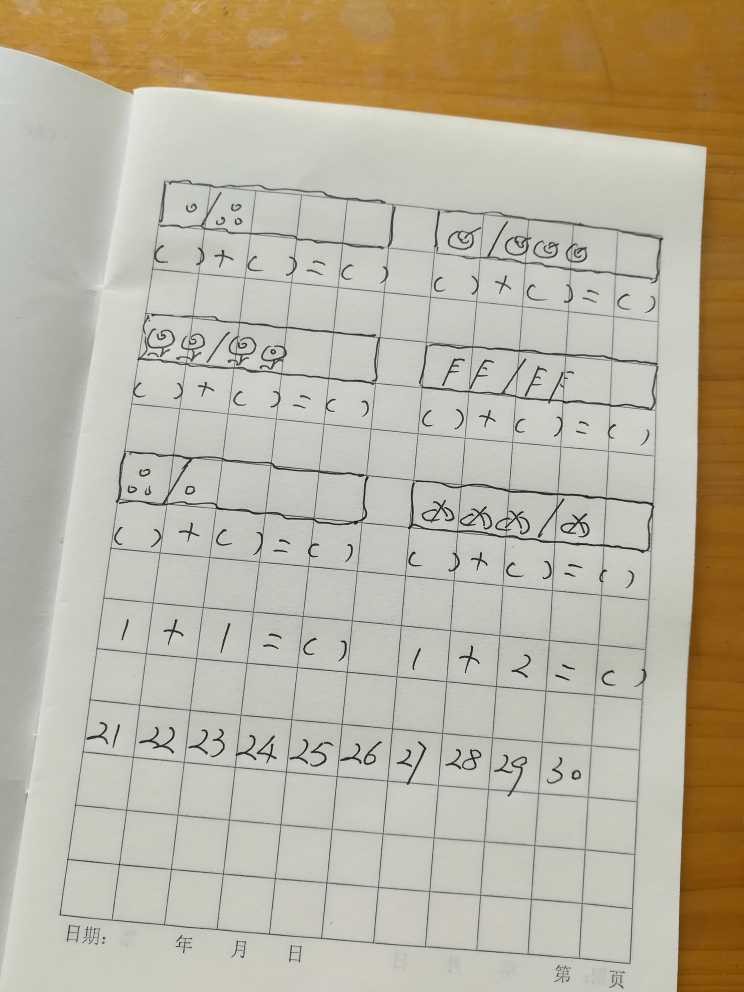 ( ) + ( ) = ( ) ( ) + ( ) = ( )
( ) + ( ) = ( ) ( ) + ( ) = ( )
( ) + ( ) = ( ) ( ) + ( ) = ( )
1 + 1 = ( ) 1 + 2 = ( )
21 22 23 24 25 26 27 28 29 30
日期: 年 月 日 第 页